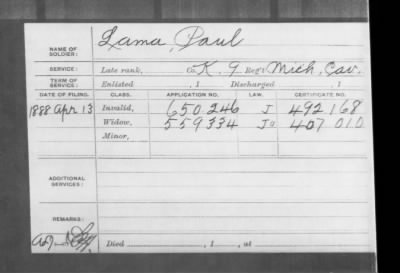 NAME OF SOLDIER: Lama, Paul
SERVICE: Late rank, Co. K, 9 Reg't Mich. Cav.
TERM OF SERVICE: Enlisted , 1 Discharged , 1
DATE OF FILING. CLASS. APPLICATION NO. LAW. CERTIFICATE NO.
1888 Apr 13 Invalid, 650 246 J 492 168
Widow, 559334 J 407 010
Minor,
ADDITIONAL SERVICES:
REMARKS:
Died , 1 , at